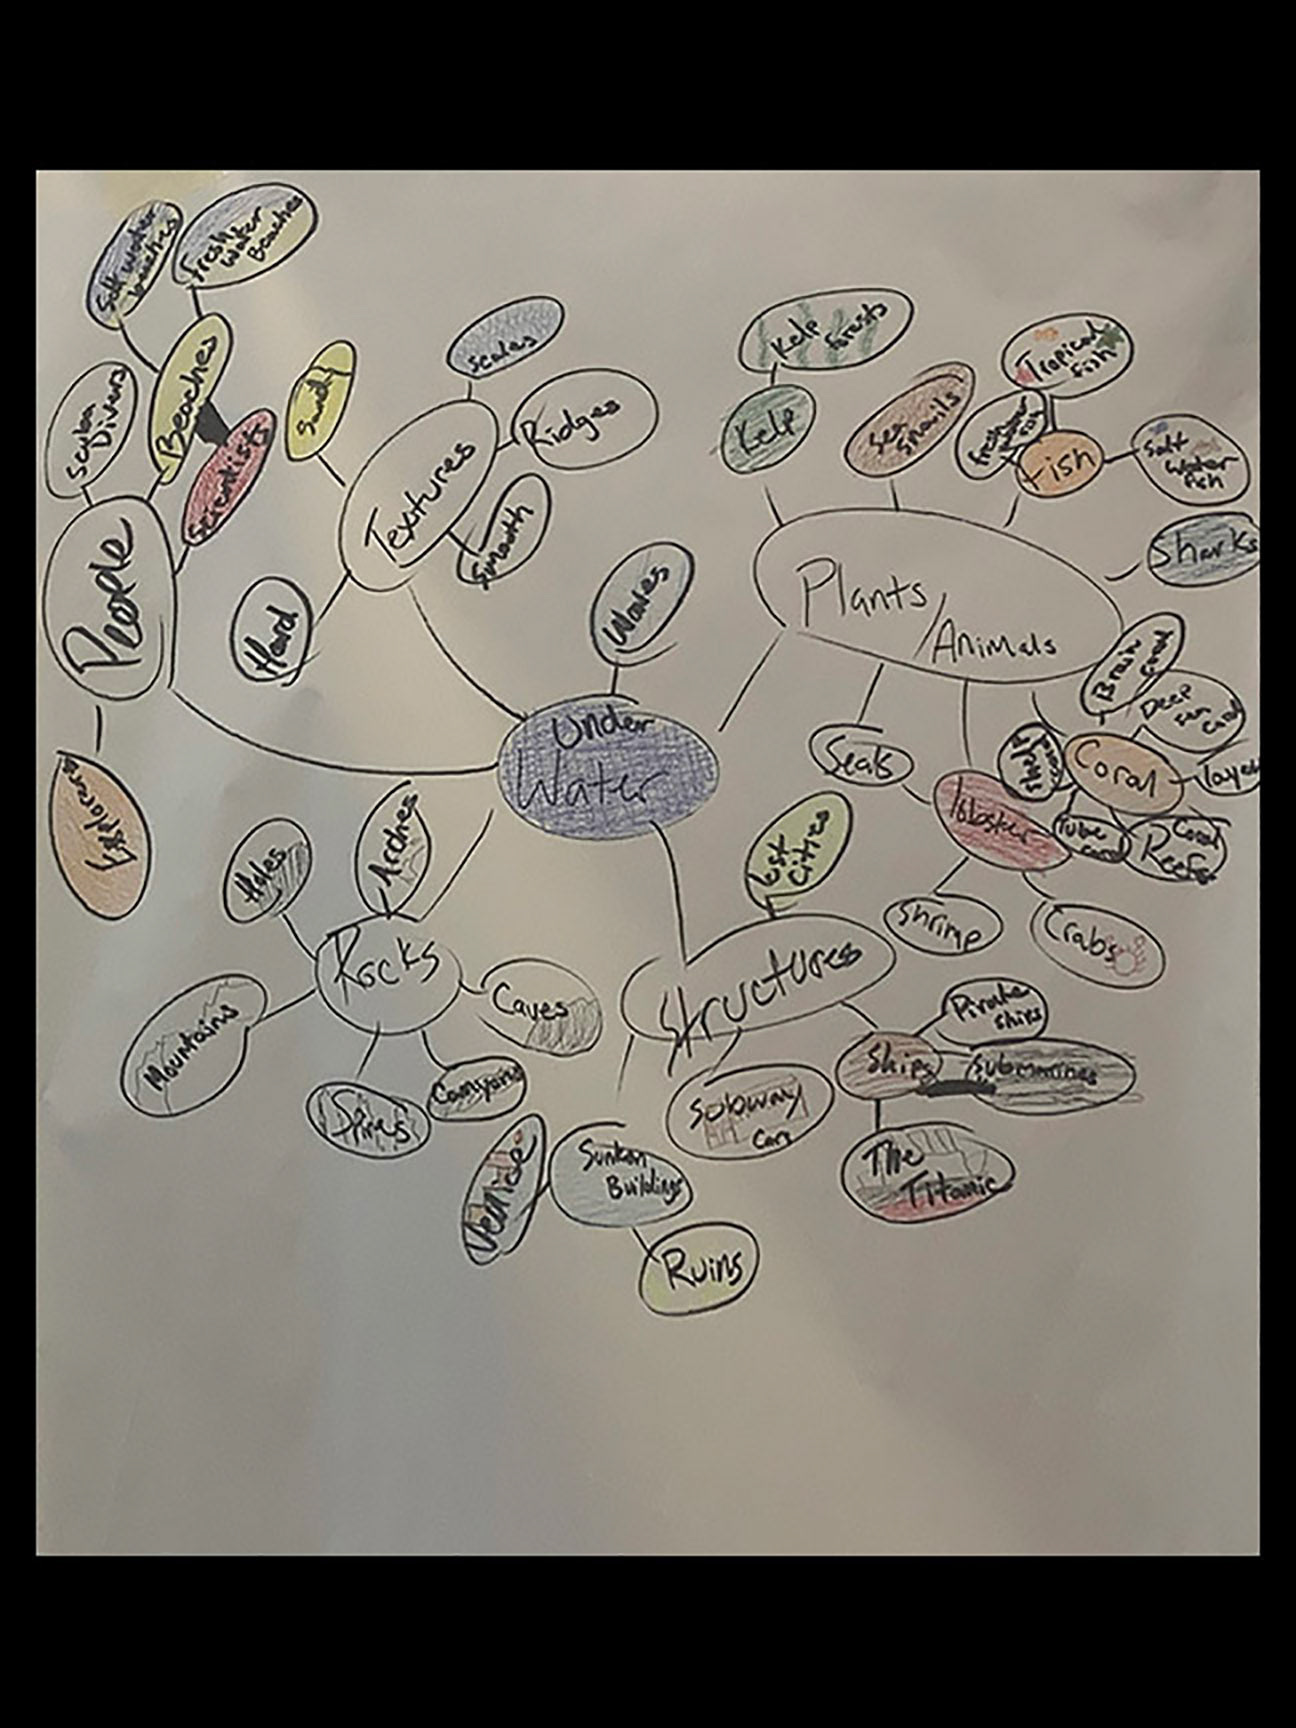 Salt water
beaches
Fresh
Water
Beaches
Beaches
Scuba
Divers
Scientists
People
Explorers
Sandy
scales
Ridges
Textures
Smooth
Hard
Waves
Under
Water
Kelp
Forests
Kelp
Sea
Snails
Tropical
Fish
Fish
Salt
Water
Fish
Sharks
Plants/
Animals
Brain
Coral
Deep
Sea
Coral
Coral
Tube
Coral
Coral
Reefs
Seals
lobster
Shrimp
Crabs
Holes
Arches
Rocks
Caves
Mountains
Spires
Lost
Cities
Structures
Pirate
ships
Ships
Submarines
Subway
Cars
The
Titanic
Venice
Sunken
Buildings
Ruins